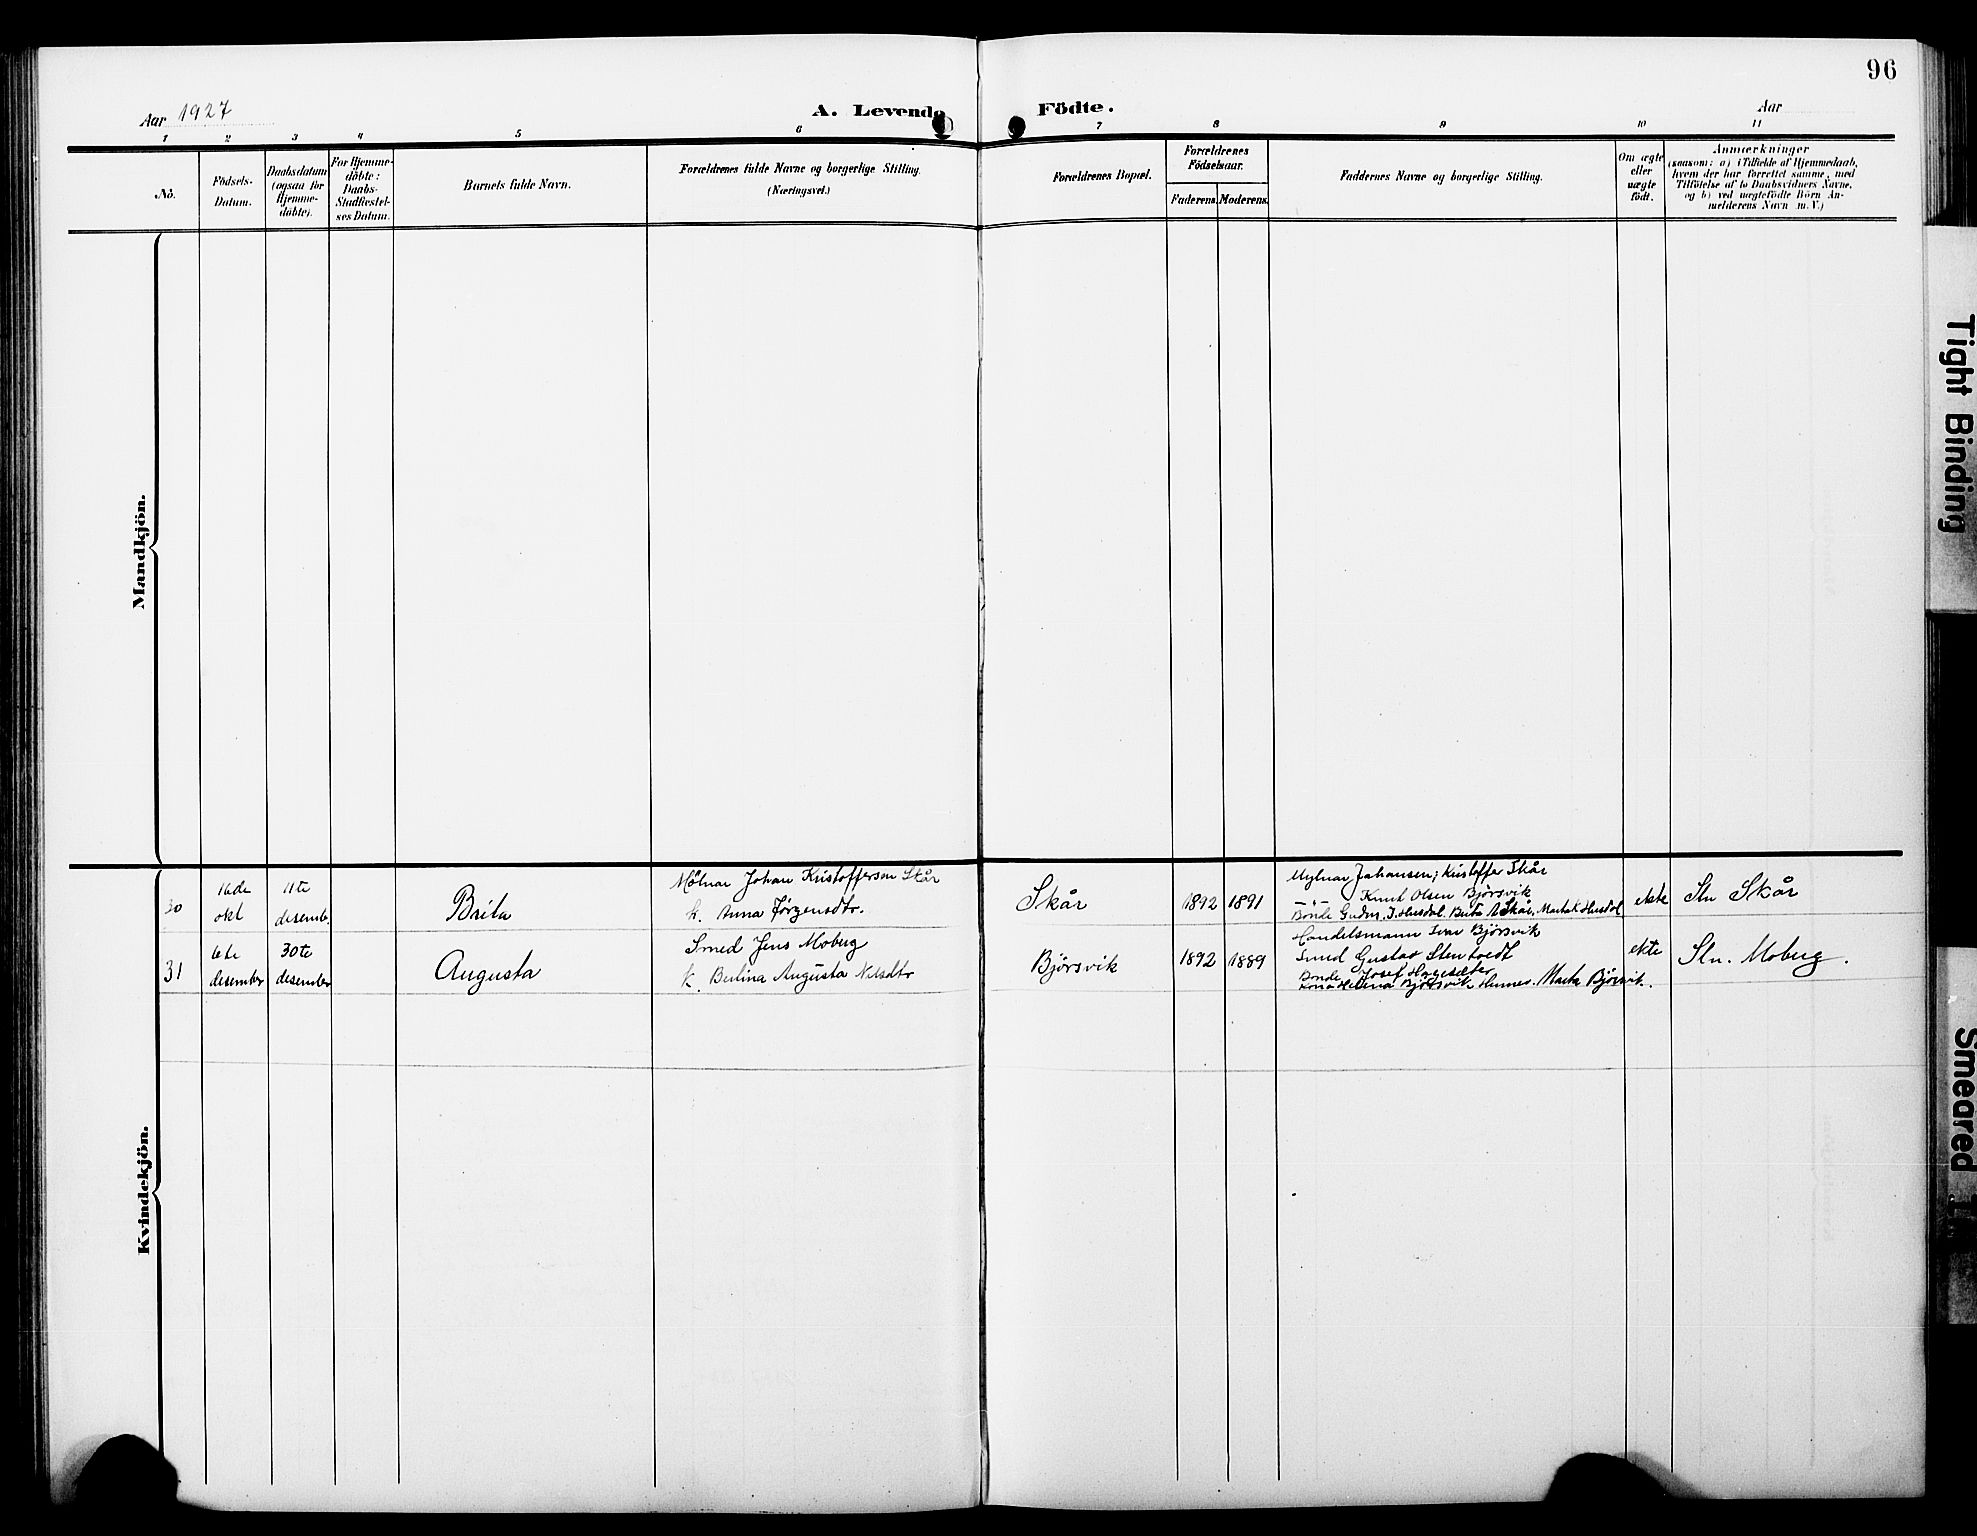 96
Aar 1927
A. Levende
Födte.
Aar
1 2 3 4 5 6 7 8 9 10 11
No.
Födsels-
Datum.
Daabsdatum
(ogsaa for
Hjemme-
döbte).
For Hjemme-
döbte:
Daabs-
Stadfæstel-
ses Datum.
Barnets fulde Navn.
Forældrenes fulde Navne og borgerlige Stilling.
(Næringsvei.)
Forældrenes Bopæl.
Forældrenes
Födselsaar.
Faderens. Moderens.
Faddernes Navne og borgerlige Stilling.
Om ægte
eller
uægte
födt.
Anmærkninger
(saasom: a) i Tilfælde af Hjemmedaab,
hvem der har forrettet samme, med
Tilföielse af to Daabsvidners Navne,
og b) ved uægtefödte Börn An-
melderens Navn m. V.)
Mandkjön.
Kvindekjön.
30
16de
okt
11te
desemb.
Brita
Mölnar Johan Kristoffersen Skår
k. Anna Jørgensdtr.
Skår
1892 1891
Mylnar Johansen; Kristoffer Skår
—"— Knut Olsen Bjørsvik
Bonde Gudm. J. Husdal. Brita A Skår, Marta K Husdal
ekte
Stn Skår
31
6te
desember
30te
desember
Augusta
Smed Jens Moberg
k. Berlina Augusta Nilsdtr
Bjørsvik
1892 1889
Handelsmann Ivar Bjørsvik
Smed Gustav Stentvedt
Bonde Josef Hagesæter
Kona Helena Bjørsvik Marta Bjørsvik.
ekte
Stn. Moberg.
Tight Binding
Smeared